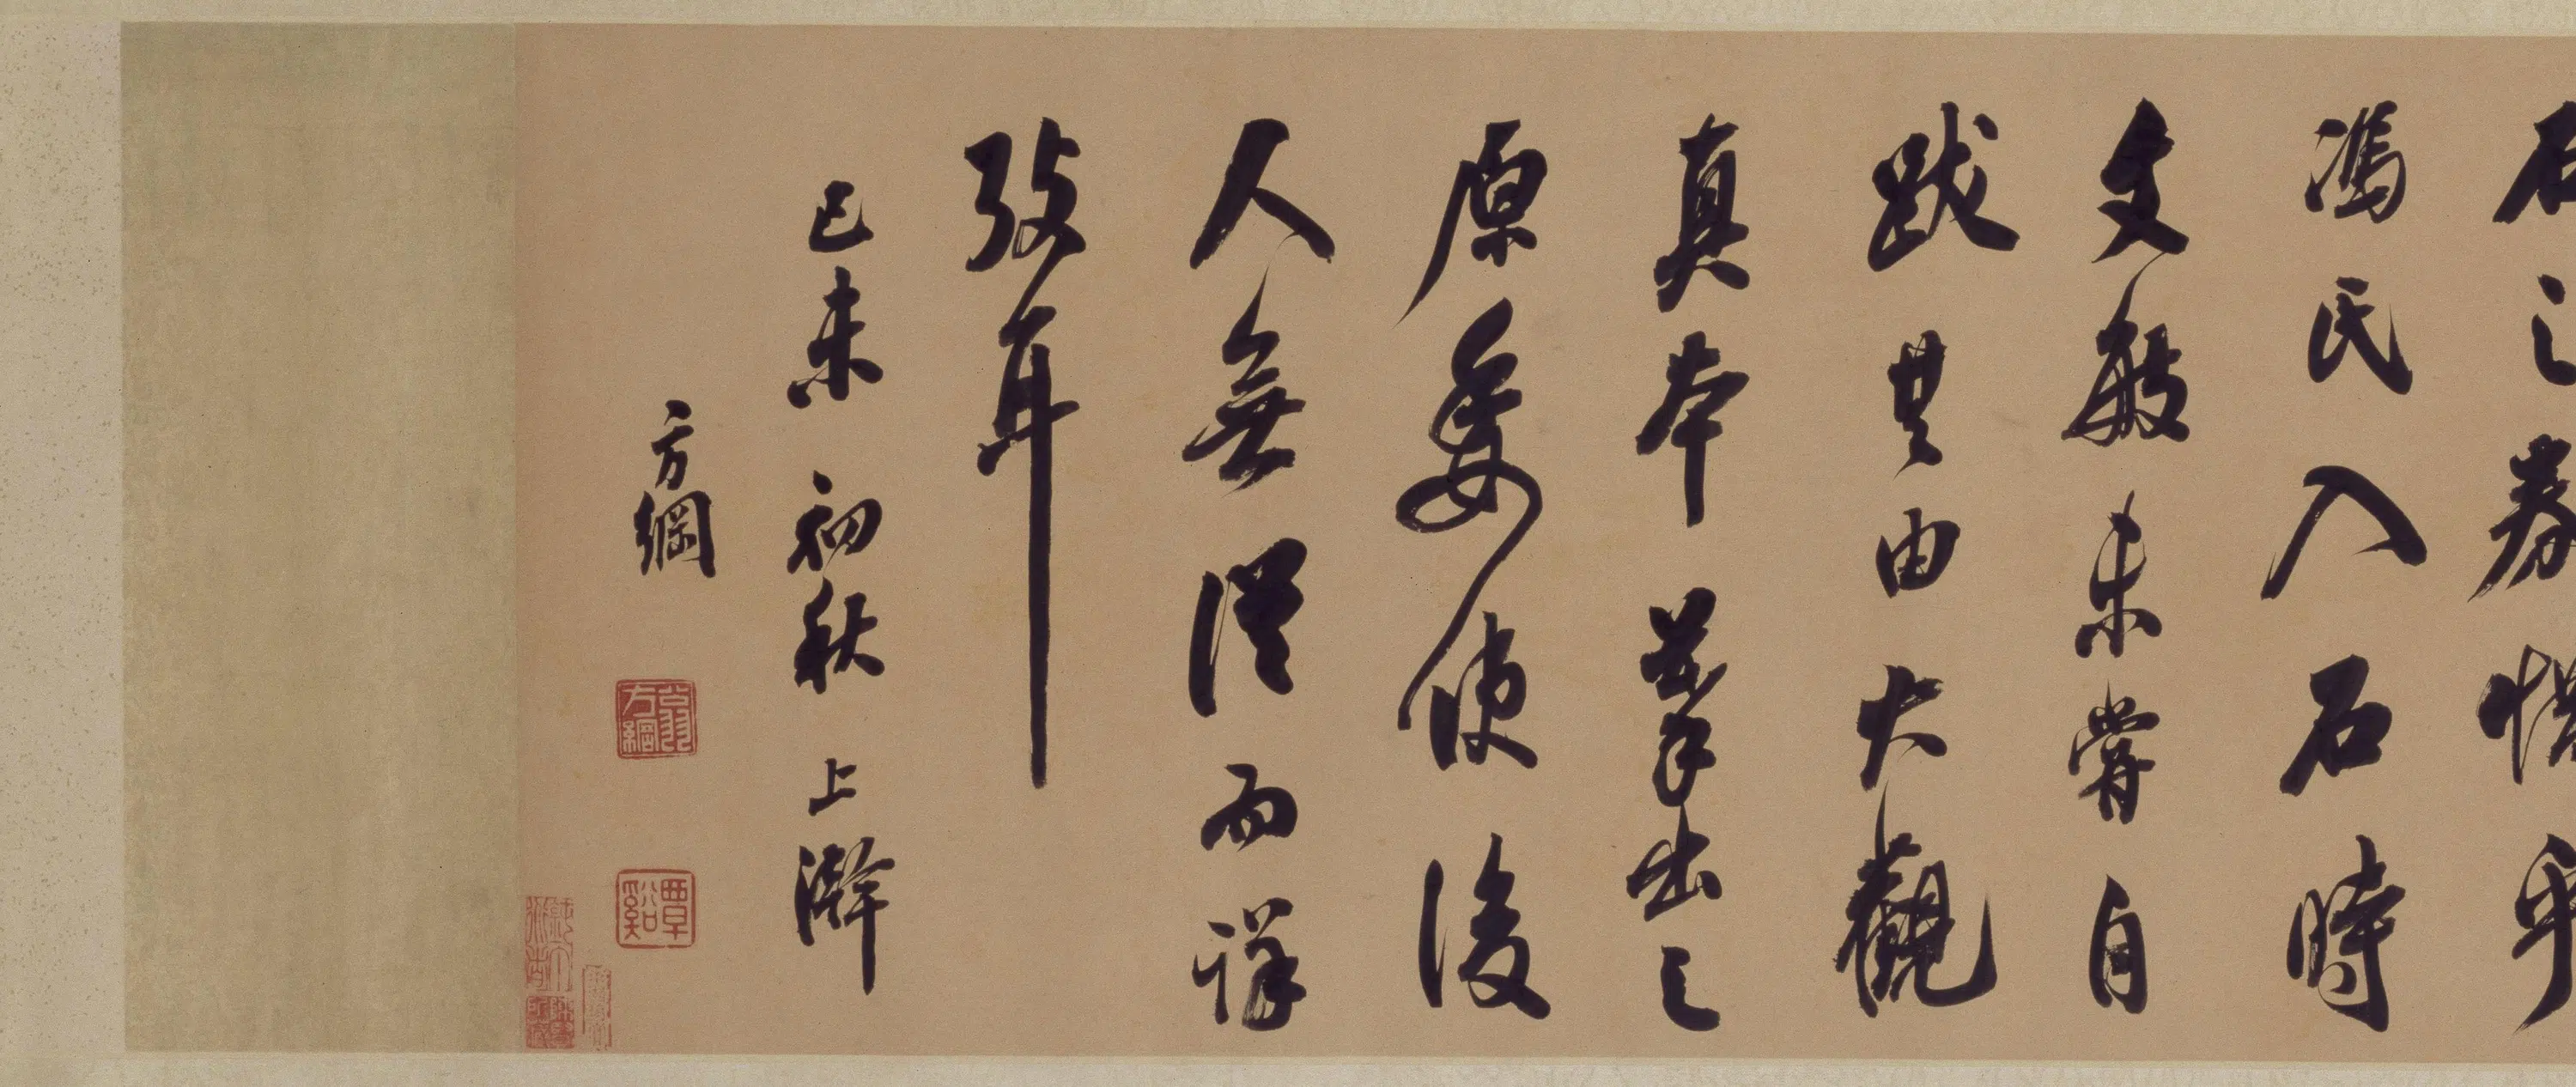 石之券惜乎
馮氏入石時
文敏未嘗自
跋其由大觀
真本摹出之
原委使後
人無從而詳
攷耳
己未初秋上澣
方綱
翁方綱
覃谿